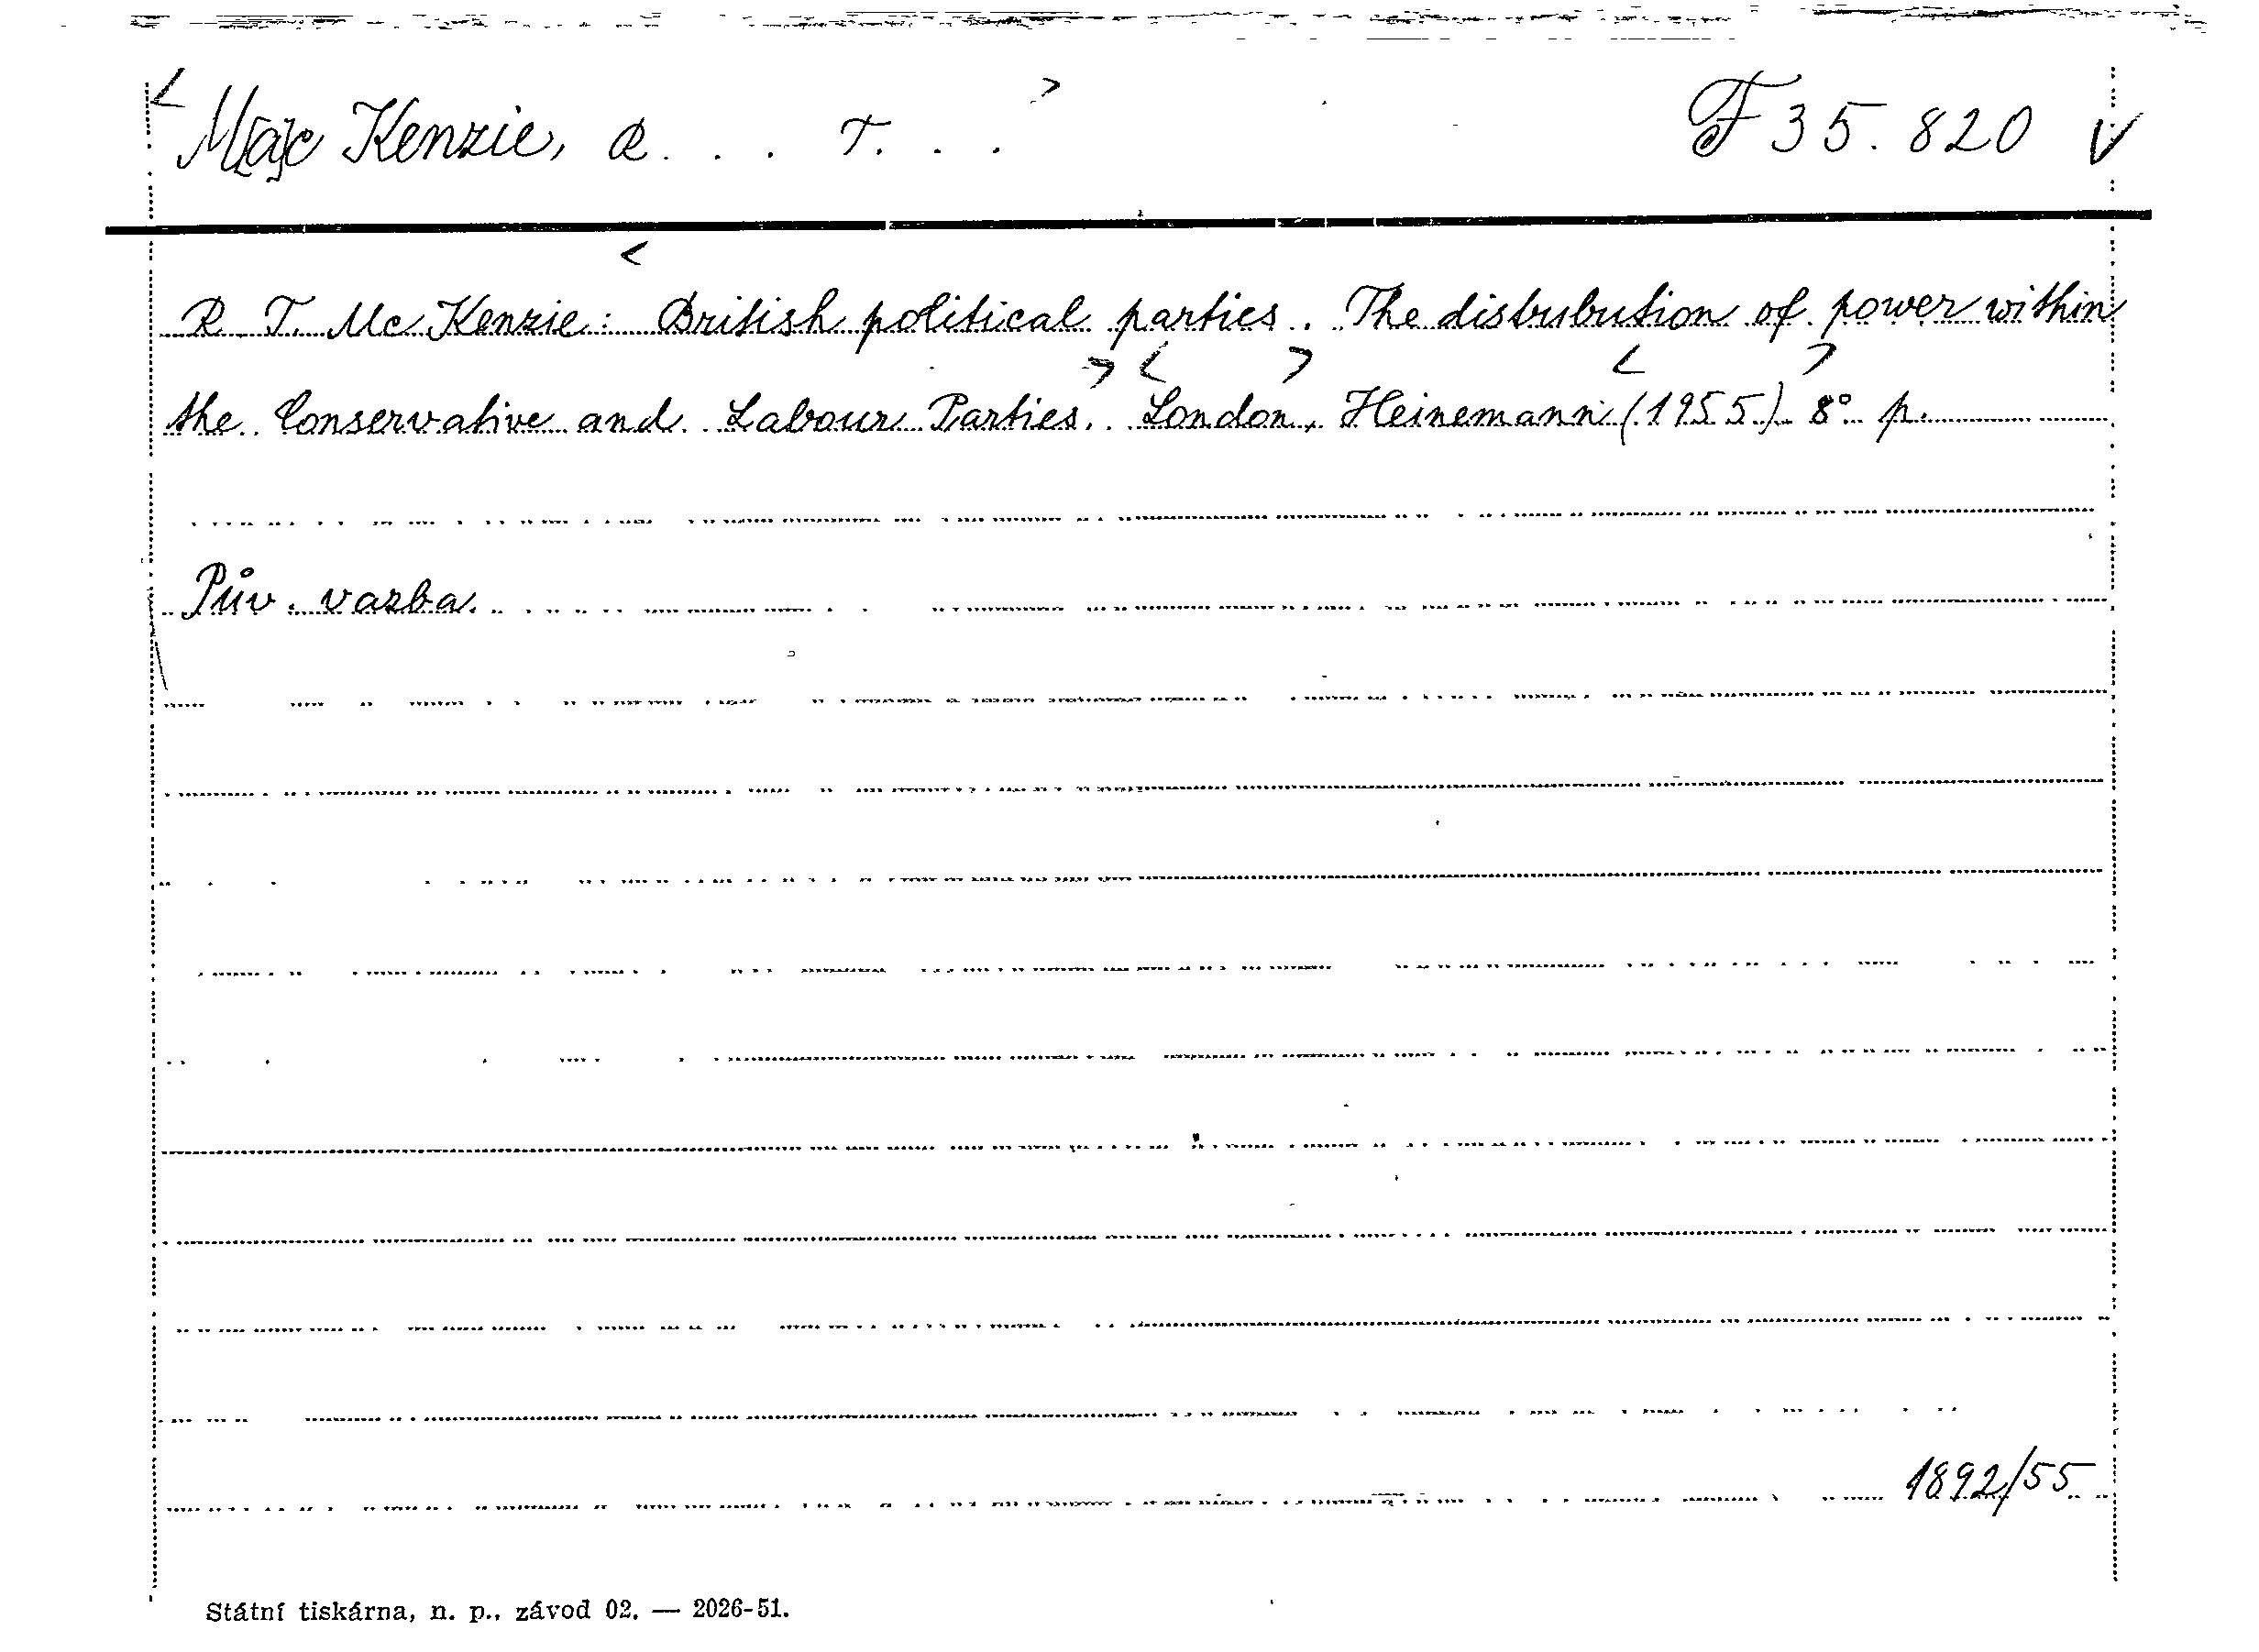 M[a]c Kenzie, R... T...
F 35.820 V
R. T. Mc Kenzie: British political parties. The distribution of power within
the Conservative and Labour Parties. London, Heinemann (1955) 8° p.
Pův. vazba.
1892/55
Státní tiskárna, n. p., závod 02. — 2026-51.